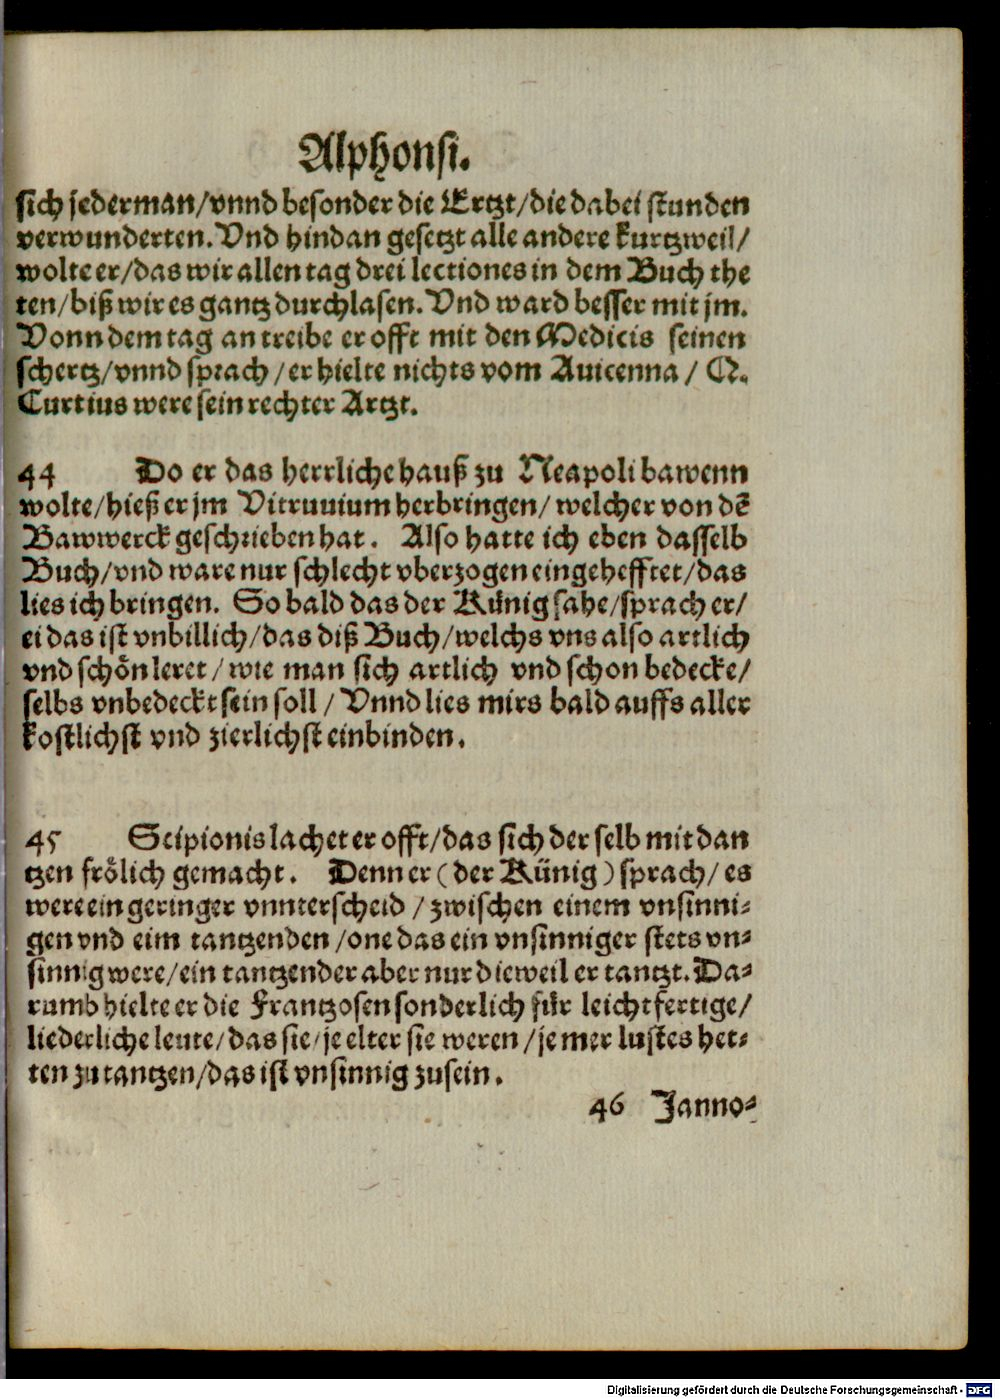 Alphonsi.
sich jederman/vnnd besonder die Ertzt/die dabei stunden
verwunderten. Vnd hindan gesetzt alle andere kurtzweil/
wolte er/das wir allen tag drei lectiones in dem Buch the
ten/biß wir es gantz durchlasen. Vnd ward besser mit jm.
Vonn dem tag an treibe er offt mit den Medicis seinen
schertz/vnnd sprach/er hielte nichts vom Auicenna / Q.
Curtius were sein rechter Artzt.
44 Do er das herrliche hauß zu Neapoli bawenn
wolte/hieß er jm Vitruuium herbringen/ welcher von dē
Bawwerck geschrieben hat. Also hatte ich eben dasselb
Buch/vnd ware nur schlecht vberzogen eingehefftet/das
lies ich bringen. So bald das der Künig sahe/sprach er/
ei das ist vnbillich/das diß Buch/welchs vns also artlich
vnd schön leret/wie man sich artlich vnd schon bedecke/
selbs vnbedeckt sein soll / Vnnd lies mirs bald auffs aller
kostlichst vnd zierlichst einbinden.
45 Scipionis lachet er offt/das sich der selb mit dan
tzen frölich gemacht. Denn er (der Künig) sprach/es
were ein geringer vnnterscheid / zwischen einem vnsinni⸗
gen vnd eim tantzenden /one das ein vnsinniger stets vn⸗
sinnig were/ein tantzender aber nur dieweil er tantzt. Da⸗
rumb hielte er die Frantzosen sonderlich für leichtfertige/
liederliche leute/das sie/je elter sie weren /je mer lustes het⸗
ten zu tantzen/das ist vnsinnig zusein.
46 Janno⸗
Digitalisierung gefördert durch die Deutsche Forschungsgemeinschaft - DFG